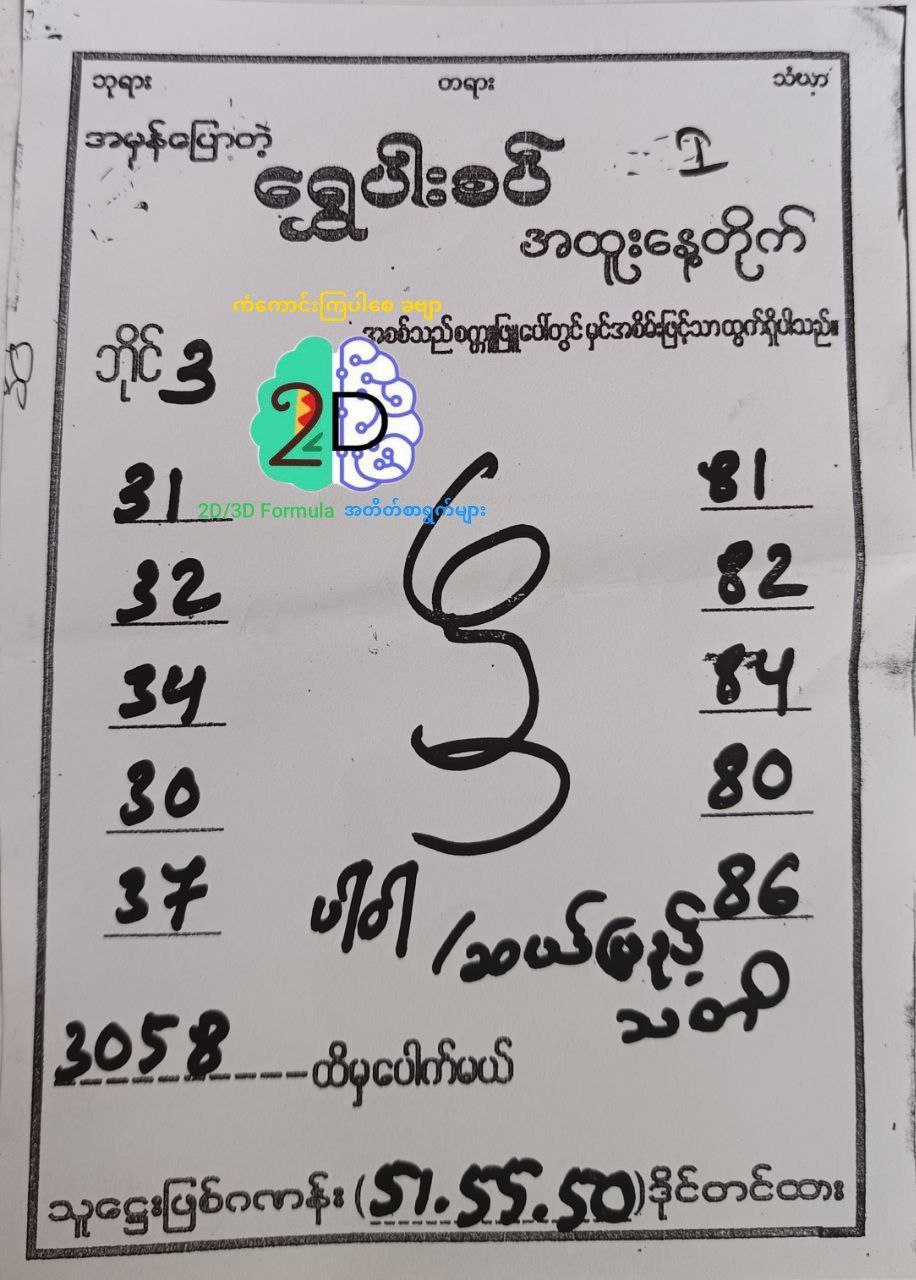 ဘုရား တရား သံဃာ
အမှန်ပြောတဲ့
ရွှေပါးစပ်
အထူးနေ့တိုက်
ကံကောင်းကြပါစေ ခဗျာ
အစစ်သည်စက္ကူဖြူပေါ်တွင် မှင်အစိမ်းဖြင့်သာထွက်ရှိပါသည်။
ဘိုင် 3
2D
2D/3D Formula အတိတ်စာရွက်များ
31 81
32 82
34 84
30 80
37 86
3058 ထိမှပေါက်မယ်
သူဌေးဖြစ်ဂဏန်း (51.55.50) ဒိုင်တင်ထား